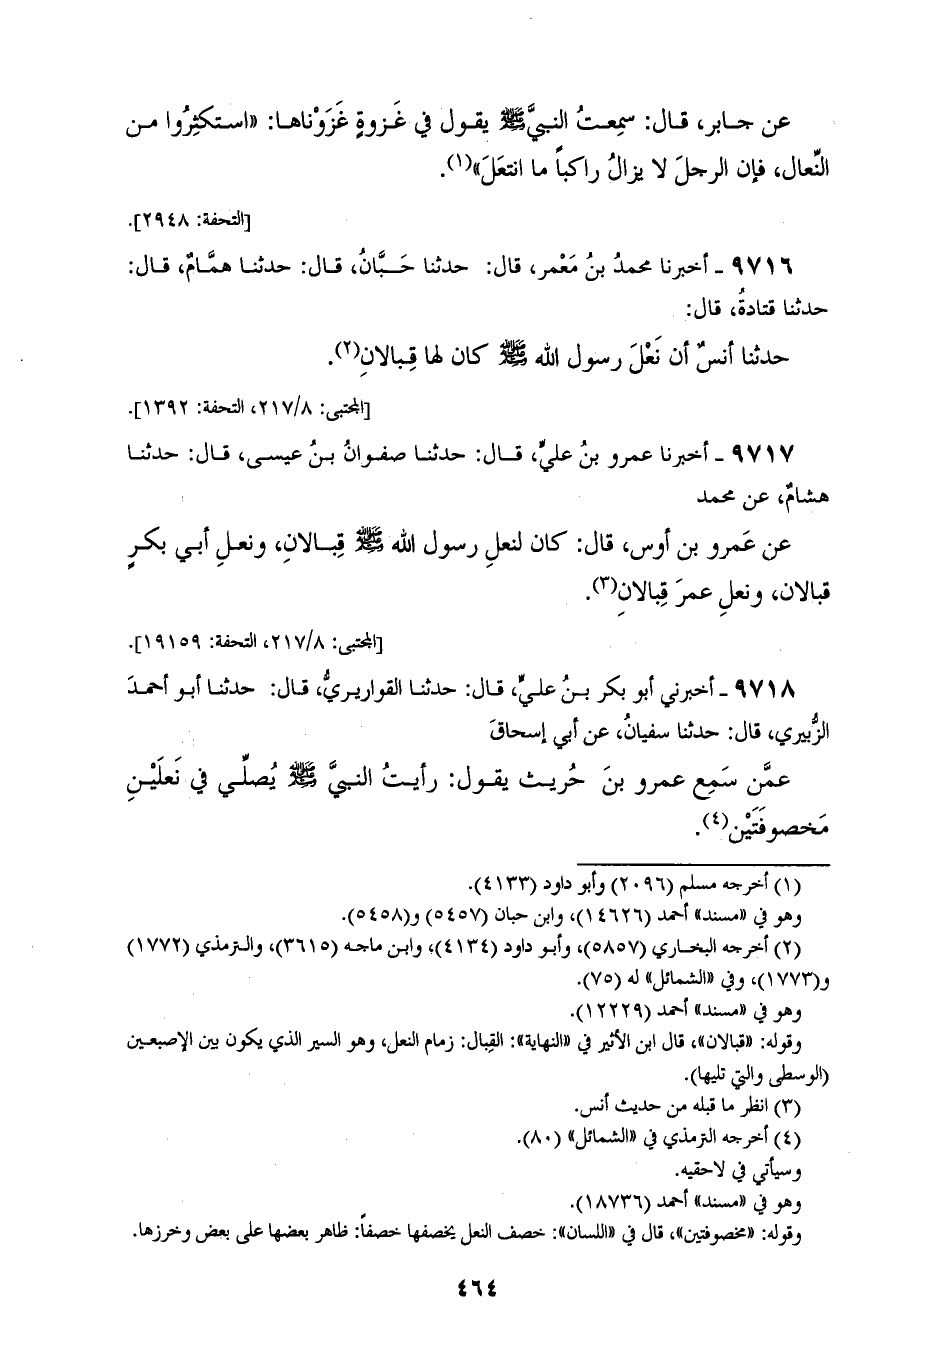 عن جابر، قال: سمِعتُ النبيَّ ﷺ يقول في غَزوةٍ غَزَوْناها: «استكثِرُوا من
النِّعال، فإن الرجلَ لا يزالُ راكباً ما انتعَلَ»(١).
[التحفة: ٢٩٤٨].
٩٧١٦ ـ أخبرنا محمدُ بنُ مَعْمر، قال: حدثنا حَبَّانُ، قال: حدثنا همَّامٌ، قال:
حدثنا قتادةُ، قال:
حدثنا أنسٌ أن نَعْلَ رسول الله ﷺ كان لها قِبالانِ(٢).
[المجتبى: ٢١٧/٨، التحفة: ١٣٩٢].
٩٧١٧ ـ أخبرنا عمرو بنُ عليٍّ، قال: حدثنا صفوانُ بنُ عيسى، قال: حدثنا
هشامٌ، عن محمد
عن عَمرو بن أوس، قال: كان لنعلِ رسول الله ﷺ قِبالانِ، ونعلِ أبي بكرٍ
قبالان، ونعلِ عمرَ قِبالانِ(٣).
[المجتبى: ٢١٧/٨، التحفة: ١٩١٥٩].
٩٧١٨ ـ أخبرني أبو بكر بنُ عليٍّ، قال: حدثنا القواريريُّ، قال: حدثنا أبو أحمدَ
الزُّبيري، قال: حدثنا سفيانُ، عن أبي إسحاقَ
عمَّن سَمِع عمرو بنَ حُريث يقول: رأيتُ النبيَّ ﷺ يُصلِّي في نَعلَيْنِ
مَخصوفَتَيْن(٤).
(١) أخرجه مسلم (٢٠٩٦) وأبو داود (٤١٣٣).
وهو في «مسند» أحمد (١٤٦٢٦)، وابن حبان (٥٤٥٧) و(٥٤٥٨).
(٢) أخرجه البخاري (٥٨٥٧)، وأبو داود (٤١٣٤)، وابن ماجه (٣٦١٥)، والترمذي (١٧٧٢)
و(١٧٧٣)، وفي «الشمائل» له (٧٥).
وهو في «مسند» أحمد (١٢٢٢٩).
وقوله: «قبالان»، قال ابن الأثير في «النهاية»: القِبال: زمام النعل، وهو السير الذي يكون بين الإصبعين
(الوسطى والتي تليها).
(٣) انظر ما قبله من حديث أنس.
(٤) أخرجه الترمذي في «الشمائل» (٨٠).
وسيأتي في لاحقيه.
وهو في «مسند» أحمد (١٨٧٣٦).
وقوله: «مخصوفتين»، قال في «اللسان»: خصف النعل يخصفها خصفاً: ظاهر بعضها على بعض وخرزها.
٤٦٤